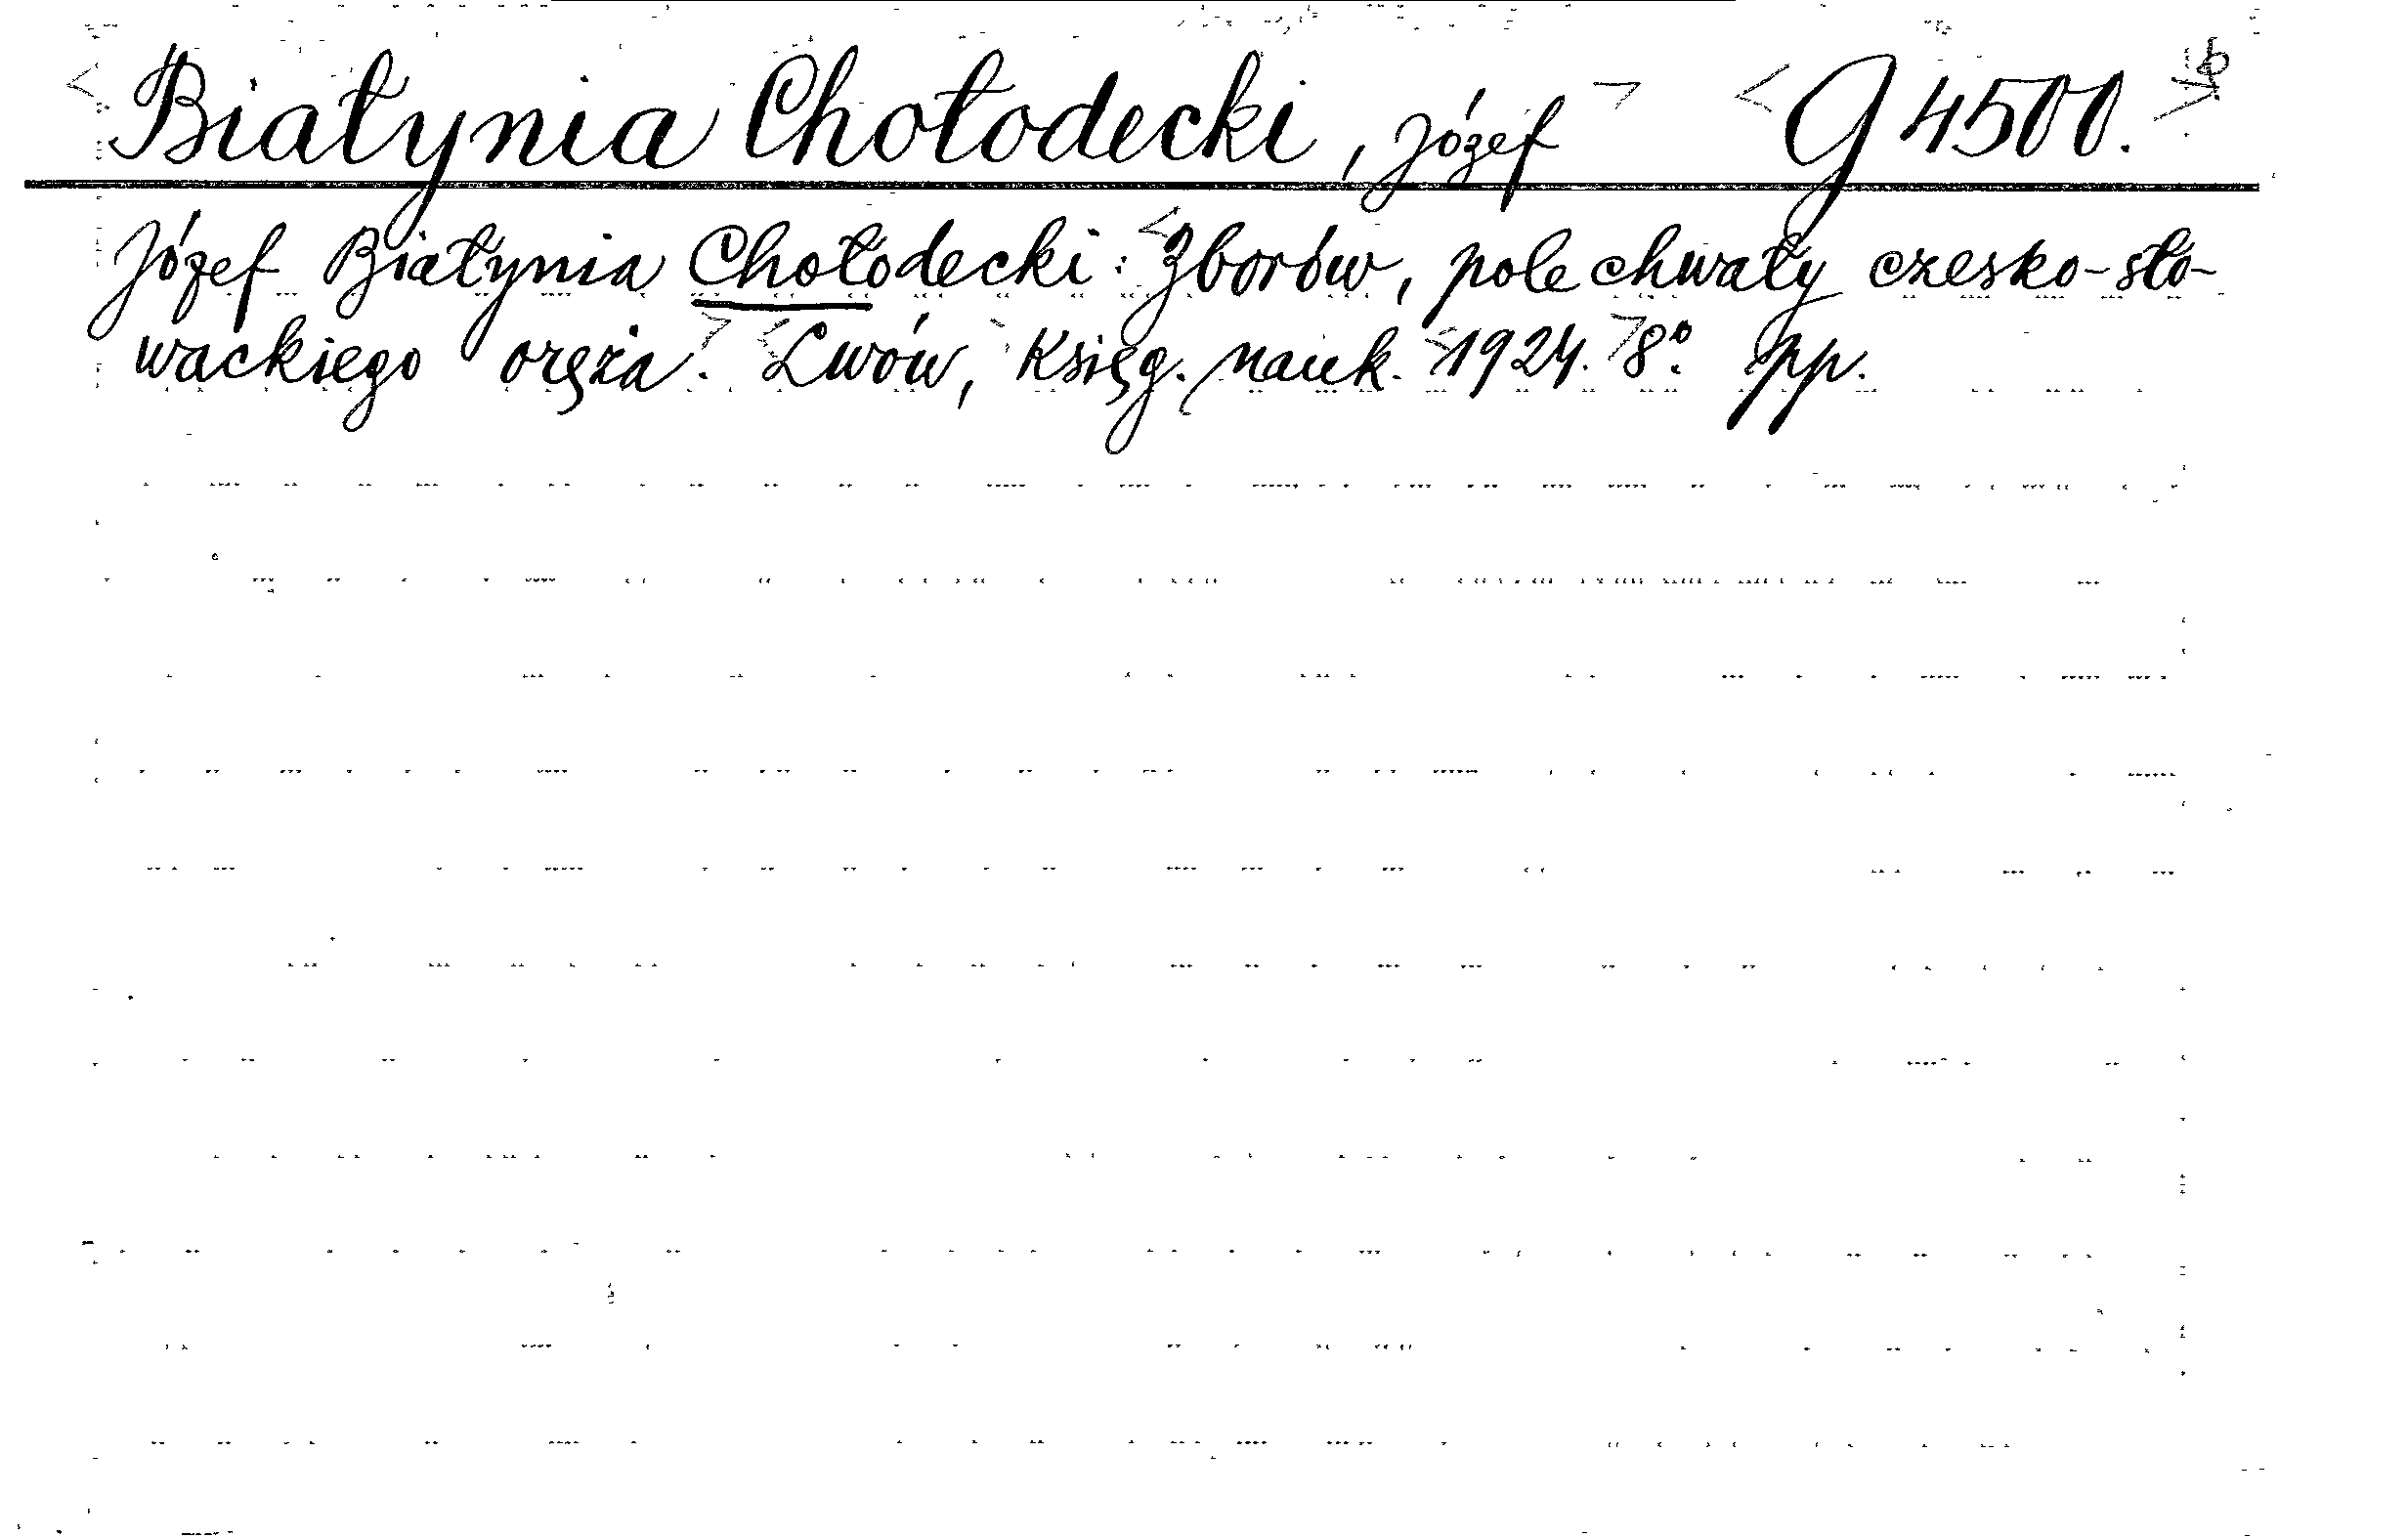 Białynia Chołodecki, Józef G 4500.
Józef Białynia Chołodecki: Zborów, pole chwały czesko-sło-
wackiego oręża. Lwów, Księg. nauk. 1924. 8º. pp.